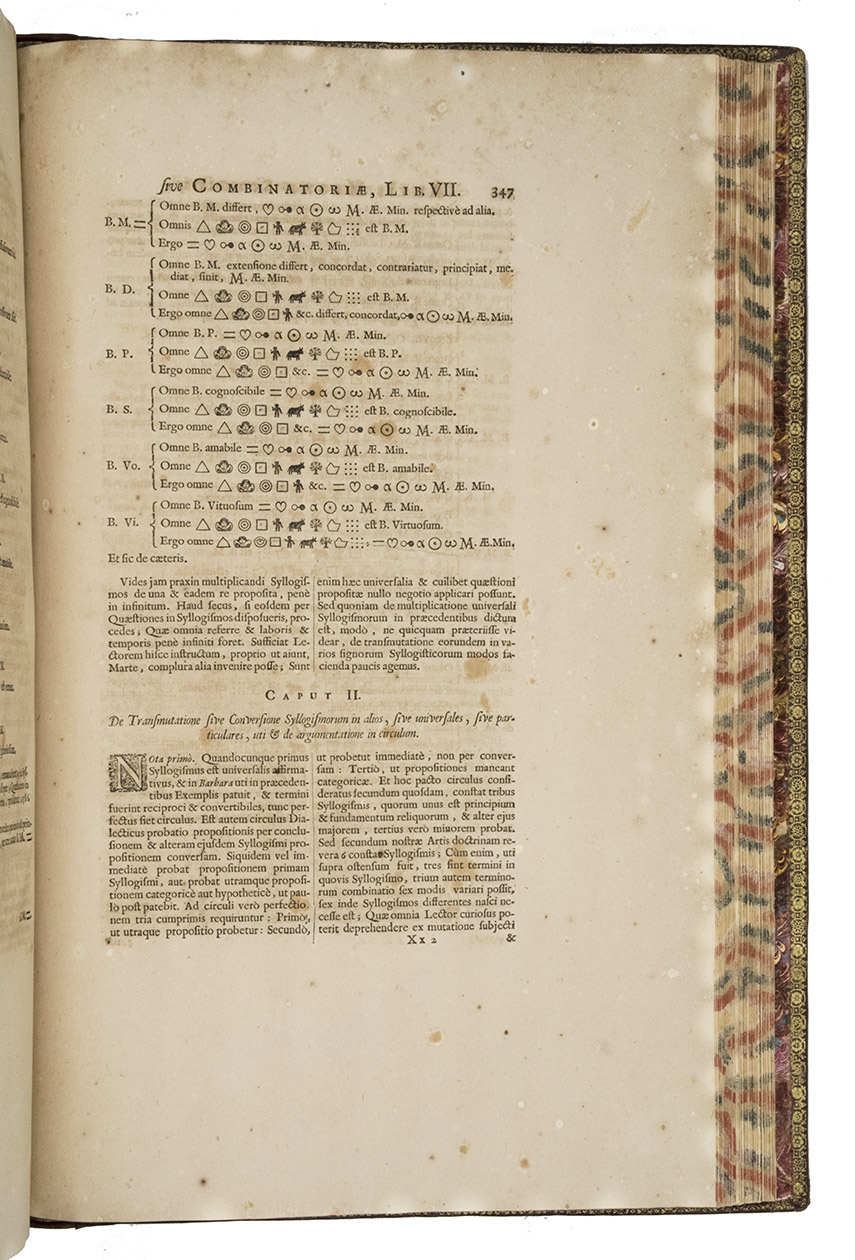 sive COMBINATORIÆ, LIB. VII. 347
Omne B. M. differt, ♡ α ☉ ω M. Æ. Min. respectivè ad alia.
B. M. = Omnis △ ◎ ⊡ est B. M.
Ergo = ♡ α ☉ ω M. Æ. Min.
Omne B. M. extensione differt, concordat, contrariatur, principiat, me-
diat, finit, M. Æ. Min.
B. D. Omne △ ◎ ⊡ est B. M.
Ergo omne △ ◎ ⊡ &c. differt, concordat, α ☉ ω M. Æ. Min.
Omne B. P. = ♡ α ☉ ω M. Æ. Min.
B. P. Omne △ ◎ ⊡ est B. P.
Ergo omne △ ◎ ⊡ &c. = ♡ α ☉ ω M. Æ. Min.
Omne B. cognoscibile = ♡ α ☉ ω M. Æ. Min.
B. S. Omne △ ◎ ⊡ est B. cognoscibile.
Ergo omne △ ◎ ⊡ &c. = ♡ α ☉ ω M. Æ. Min.
Omne B. amabile = ♡ α ☉ ω M. Æ. Min.
B. Vo. Omne △ ◎ ⊡ est B. amabile.
Ergo omne △ ◎ ⊡ &c. = ♡ α ☉ ω M. Æ. Min.
Omne B. Vituosum = ♡ α ☉ ω M. Æ. Min.
B. Vi. Omne △ ◎ ⊡ est B. Virtuosum.
Ergo omne △ ◎ ⊡ = ♡ α ☉ ω M. Æ. Min.
Et sic de cæteris.
Vides jam praxin multiplicandi Syllogis-
mos de una & eadem re proposita, penè
in infinitum. Haud secus, si eosdem per
Quæstiones in Syllogismos disposueris, pro-
cedes; Quæ omnia referre & laboris &
temporis penè infiniti foret. Sufficiat Le-
ctorem hisce instructum, proprio ut aiunt,
Marte, complura alia invenire posse; Sunt
enim hæc universalia & cuilibet quæstioni
propositæ nullo negotio applicari possunt.
Sed quoniam de multiplicatione universali
Syllogismorum in præcedentibus dictum
est, modò, ne quicquam præteriisse vi-
dear, de transmutatione eorundem in va-
rios signorum Syllogisticorum modos fa-
cienda paucis agemus.
CAPUT II.
De Transmutatione sive Conversione Syllogismorum in alios, sive universales, sive par-
ticulares, uti & de argumentatione in circulum.
Nota primò. Quandocunque primus
Syllogismus est universalis affirma-
tivus, & in Barbara uti in præceden-
tibus Exemplis patuit, & termini
fuerint reciproci & convertibiles, tunc per-
fectus fiet circulus. Est autem circulus Dia-
lecticus probatio propositionis per conclu-
sionem & alteram ejusdem Syllogismi pro-
positionem conversam. Siquidem vel im-
mediatè probat propositionem primam
Syllogismi, aut probat utramque proposi-
tionem categoricè aut hypotheticè, ut pau-
lò post patebit. Ad circuli verò perfectio-
nem tria cumprimis requiruntur: Primò,
ut utraque propositio probetur: Secundò,
ut probetur immediatè, non per conver-
sam: Tertiò, ut propositiones maneant
categoricæ. Et hoc pacto circulus consi-
deratus secundum quosdam, constat tribus
Syllogismis, quorum unus est principium
& fundamentum reliquorum, & alter ejus
majorem, tertius verò minorem probat.
Sed secundum nostræ Artis doctrinam re-
vera 6 constat Syllogismis; Cùm enim, uti
supra ostensum fuit, tres sint termini in
quovis Syllogismo, trium autem termino-
rum combinatio sex modis variari possit,
sex inde Syllogismos differentes nasci ne-
cesse est; Quæ omnia Lector curiosus po-
terit deprehendere ex mutatione subjecti
Xx 2 &